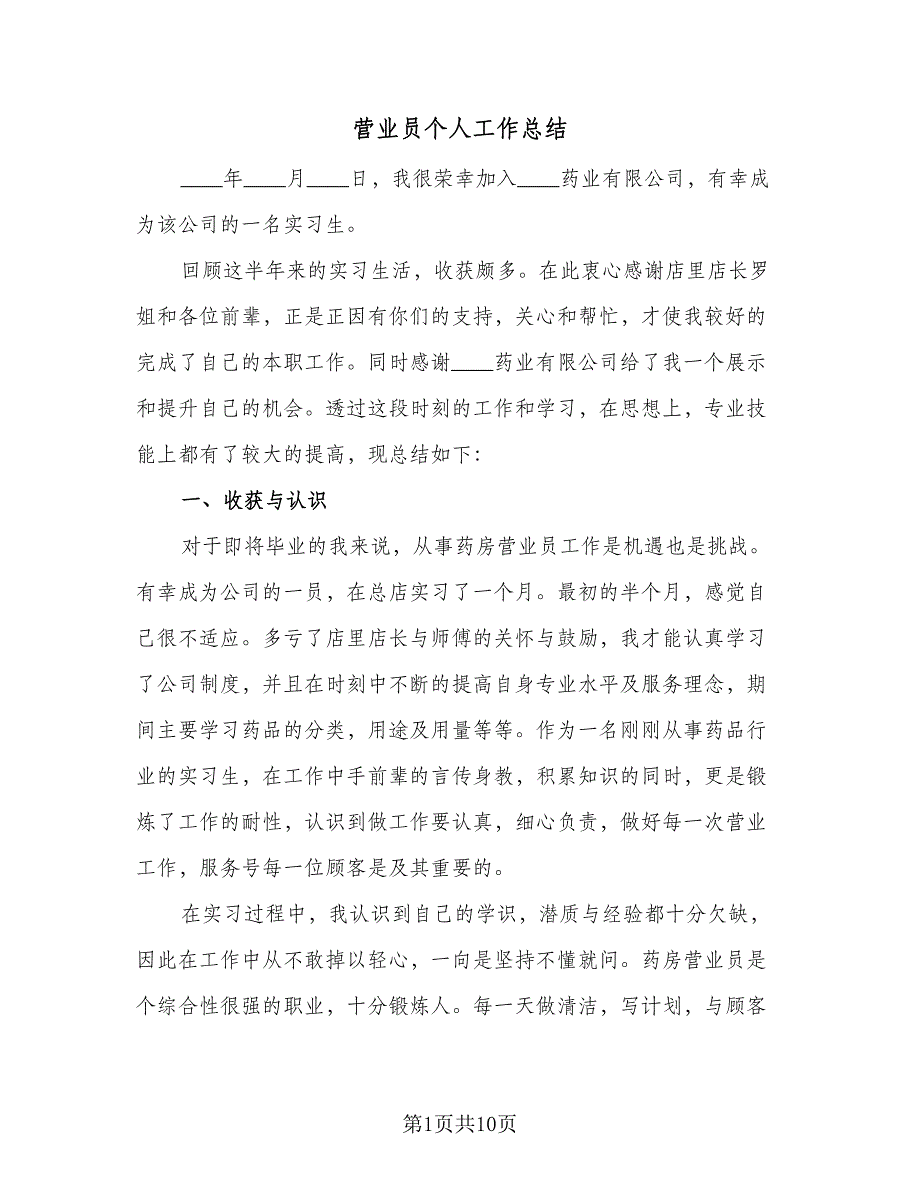 营业员个人工作总结
____年____月____日，我很荣幸加入____药业有限公司，有幸成
为该公司的一名实习生。
回顾这半年来的实习生活，收获颇多。在此衷心感谢店里店长罗
姐和各位前辈，正是正因有你们的支持，关心和帮忙，才使我较好的
完成了自己的本职工作。同时感谢____药业有限公司给了我一个展示
和提升自己的机会。透过这段时刻的工作和学习，在思想上，专业技
能上都有了较大的提高，现总结如下：
一、收获与认识
对于即将毕业的我来说，从事药房营业员工作是机遇也是挑战。
有幸成为公司的一员，在总店实习了一个月。最初的半个月，感觉自
己很不适应。多亏了店里店长与师傅的关怀与鼓励，我才能认真学习
了公司制度，并且在时刻中不断的提高自身专业水平及服务理念，期
间主要学习药品的分类，用途及用量等等。作为一名刚刚从事药品行
业的实习生，在工作中手前辈的言传身教，积累知识的同时，更是锻
炼了工作的耐性，认识到做工作要认真，细心负责，做好每一次营业
工作，服务号每一位顾客是及其重要的。
在实习过程中，我认识到自己的学识，潜质与经验都十分欠缺，
因此在工作中从不敢掉以轻心，一向是坚持不懂就问。药房营业员是
个综合性很强的职业，十分锻炼人。每一天做清洁，写计划，与顾客
第1页共10页